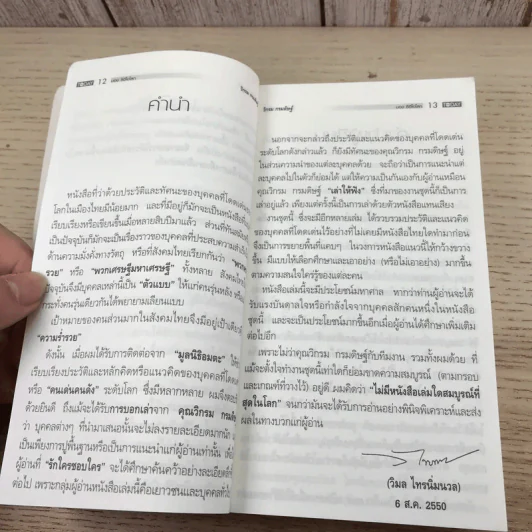 12
คำนำ
หนังสือที่ว่าด้วยประวัติและทัศนะของบุคคลที่โดดเด่น
โลกในเมืองไทยมีน้อยมาก และที่มีอยู่ก็มักจะเป็นหนังสือที่
เรียบเรียงหรือเขียนขึ้นเมื่อหลายสิบปีมาแล้ว ส่วนที่
เป็นปัจจุบันก็มักจะเป็นเรื่องราวของบุคคลที่ประสบความสำเร็จ
ด้านความมั่งคั่งทางวัตถุ หรือที่สังคมไทยเรียกกันว่า
รวย" หรือ "พวกเศรษฐีมหาเศรษฐี" ทั้งหลาย สังคมไทย
ปัจจุบันจึงมีบุคคลเหล่านี้เป็น "ตัวแบบ" ให้แก่คนรุ่นหลัง
กระทั่งคนรุ่นเดียวกันได้พยายามเลียนแบบ
เป้าหมายของคนส่วนมากในสังคมไทยจึงมีอยู่เป้าเดียว
"ความร่ำรวย"
ดังนั้น เมื่อผมได้รับการติดต่อจาก "มูลนิธิอมตะ"
เรียบเรียงประวัติและหลักคิดหรือแนวคิดของบุคคล
หรือ "คนเด่นคนดัง" ระดับโลก ซึ่งมีหลากหลาย ผมจึงตกลง
ด้วยยินดี ถึงแม้จะได้รับการบอกเล่าจาก คุณวิกรม กรมดิษฐ์
ว่า บุคคลต่างๆ ที่นำมาเสนอนั้นจะไม่ลงรายละเอียดมากนัก
เป็นเพียงการปูพื้นฐานหรือเป็นการแนะนำแก่ผู้อ่านเท่านั้น
ผู้อ่านที่ "รักใครชอบใคร" จะได้ศึกษาค้นคว้าอย่างละเอียด
ต่อไป เพราะกลุ่มผู้อ่านหนังสือเล่มนี้คือเยาวชนและบุคคล
วิกรม กรมดิษฐ์
13
นอกจากจะกล่าวถึงประวัติและแนวคิดของบุคคลที่โดดเด่น
ระดับโลกดังกล่าวแล้ว ก็ยังมีทัศนะของคุณวิกรม กรมดิษฐ์ อยู่
ในส่วนความนำของแต่ละบุคคลด้วย จะถือว่าเป็นการแนะนำแต่
ละบุคคลไปในตัวก็ย่อมได้ แต่ให้ความเป็นกันเองกับผู้อ่านเหมือน
คุณวิกรม กรมดิษฐ์ "เล่าให้ฟัง" ซึ่งที่มาของงานชุดนี้ก็เป็นการ
เล่าอยู่แล้ว เพียงแต่ครั้งนี้เป็นการเล่าด้วยตัวหนังสือแทนเสียง
งานชุดนี้ ซึ่งจะมีอีกหลายเล่ม ได้รวบรวมประวัติและแนวคิด
ของบุคคลที่โดดเด่นระดับโลกอย่างที่ไม่เคยมีหนังสือไทยใดทำมาก่อน
จึงเป็นการขยายพื้นที่แคบๆ ในวงการหนังสือแนวนี้ให้กว้างขวาง
ขึ้น มีแบบให้เลือกศึกษาและเอาอย่าง (หรือไม่เอาอย่าง) มากขึ้น
ตามความสนใจใคร่รู้ของแต่ละคน
หนังสือเล่มนี้จะมีประโยชน์มหาศาล หากว่าท่านผู้อ่านจะได้
รับแรงบันดาลใจหรือกำลังใจจากบุคคลสักคนหนึ่งในหนังสือ
ชุดนี้ และจะเป็นประโยชน์มากขึ้นอีกเมื่อผู้อ่านได้ศึกษาเพิ่มเติม
ต่อไปอีก
เพราะไม่ว่าคุณวิกรม กรมดิษฐ์กับทีมงาน รวมทั้งผมด้วย ที่
แม้จะตั้งใจทำงานชุดนี้ให้ดี ก็ย่อมขาดความสมบูรณ์ (ตามกรอบ
และเกณฑ์ที่วางไว้) อยู่ดี ผมคิดว่า "ไม่มีหนังสือเล่มใดสมบูรณ์ที่
สุดในโลก" จนกว่ามันจะได้รับการอ่านอย่างพินิจพิเคราะห์และส่ง
ผลในทางบวกแก่ผู้อ่าน
(วิมล ไทรนิ่มนวล)
6 ส.ค. 2550